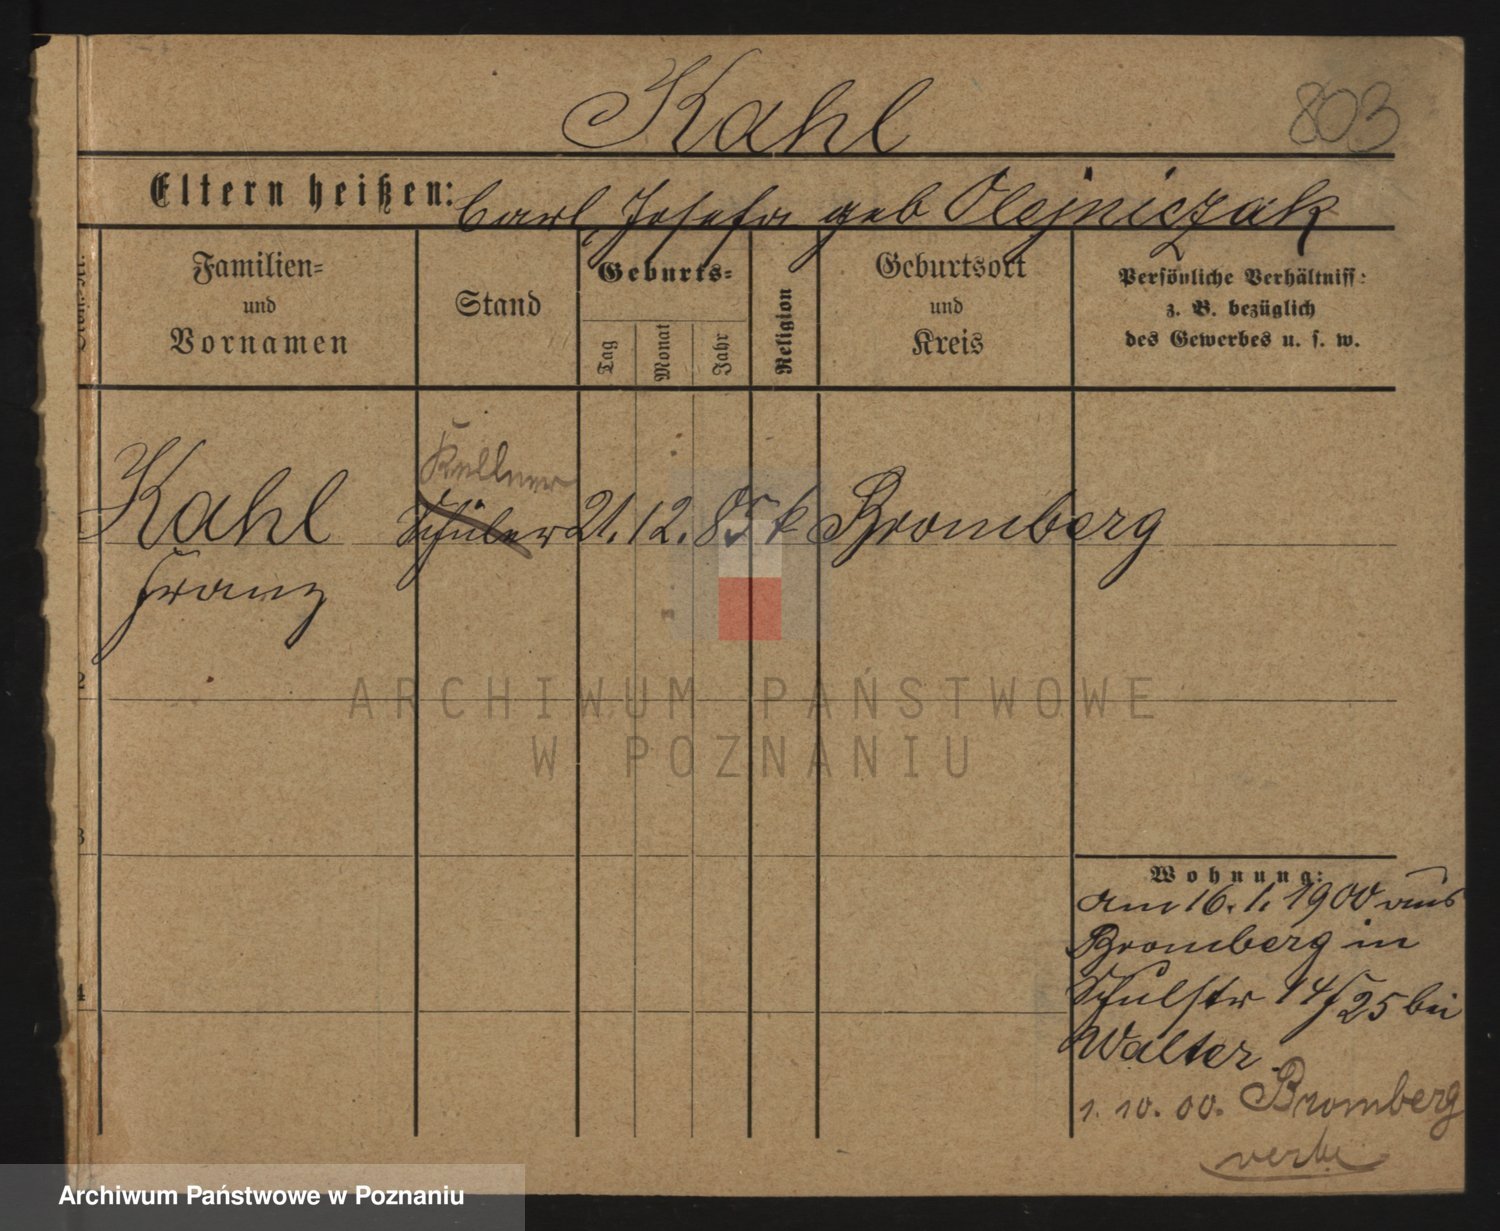 Kahl
803
Eltern heißen: Carl, Josefa geb Olejniczak
Familien=
und
Vornamen
Stand
Geburts=
Tag
Monat
Jahr
Religion
Geburtsort
und
Kreis
Persönliche Verhältniss:
z. B. bezüglich
des Gewerbes u. s. w.
Kellner
1 Kahl Schüler 21. 12. 85 k Bromberg
Franz
2
3
4
Wohnung:
am 16. 1. 1900 aus
Bromberg in
Schulstr 14/25 bei
Walter
1. 10. 00. Bromberg
ARCHIWUM PAŃSTWOWE
W POZNANIU
Archiwum Państwowe w Poznaniu